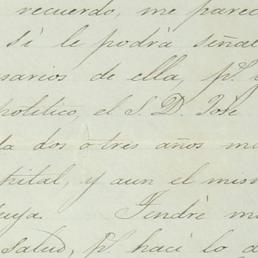 recuerdo, me parec
si le podra señal
sarios de ella, p.ʳ
politico, el S. D. José
da dos o tres años m
pital, y aun el mism
uya. Tendré m
salud, p.ʳ haci lo d